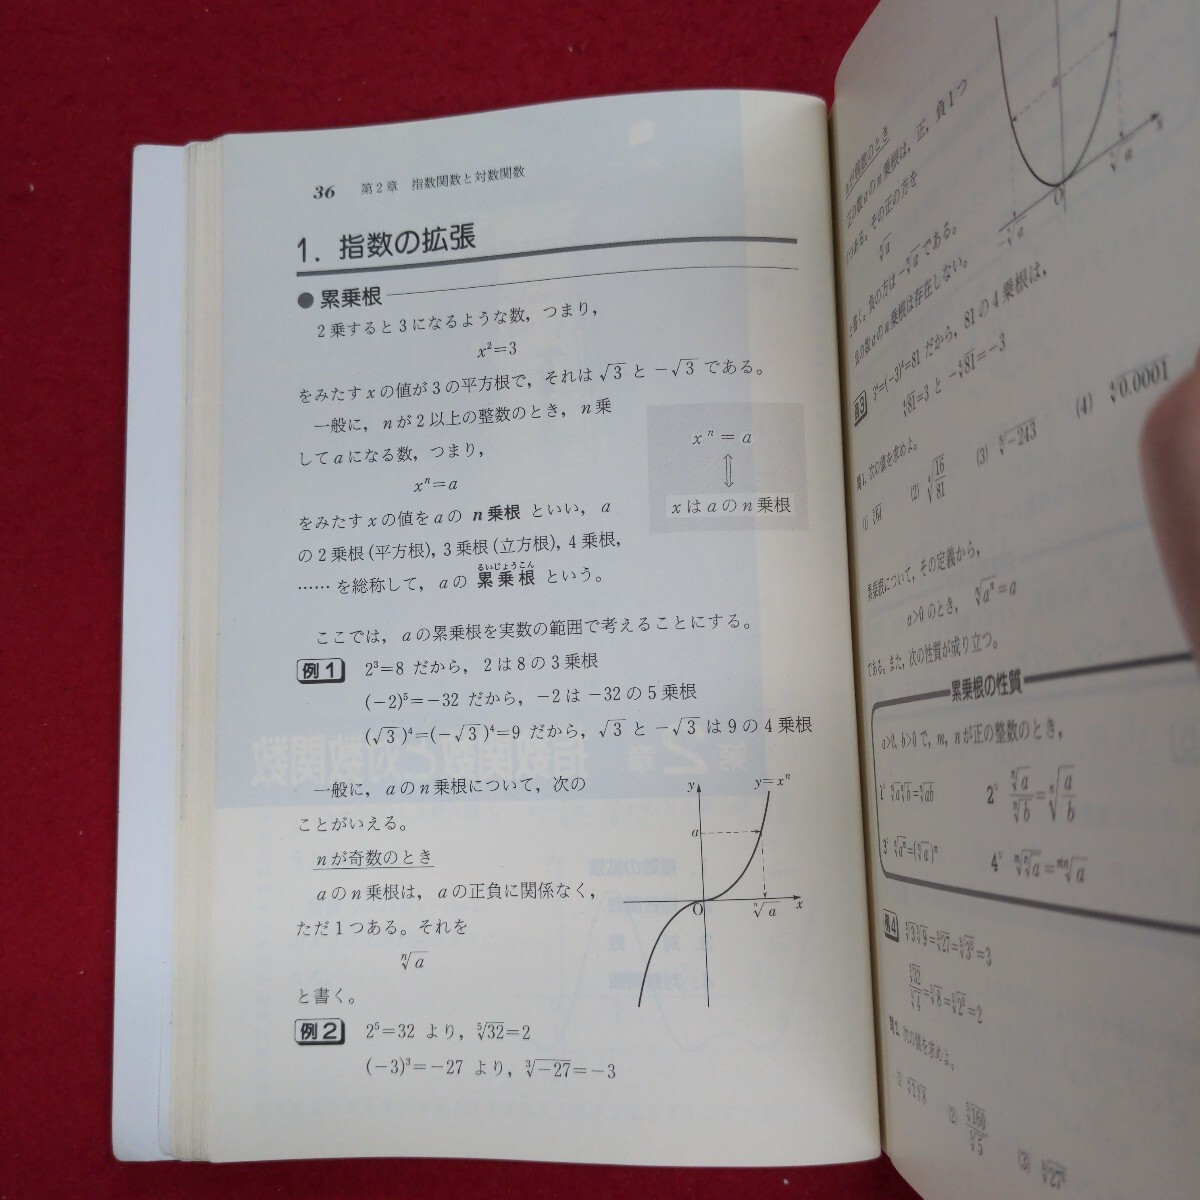 36 第2章 指数関数と対数関数
1. 指数の拡張
● 累乗根
2乗すると3になるような数，つまり，
x²=3
をみたすxの値が3の平方根で，それは √3 と −√3 である。
一般に，nが2以上の整数のとき，n乗
してaになる数，つまり，
xⁿ=a
をみたすxの値をaの n乗根 といい，a
の2乗根(平方根)，3乗根(立方根)，4乗根，
るいじょうこん
……を総称して，aの 累乗根 という。
xⁿ = a
⇕
xはaのn乗根
ここでは，aの累乗根を実数の範囲で考えることにする。
例1 2³=8 だから，2は8の3乗根
(−2)⁵=−32 だから，−2は −32の5乗根
(√3)⁴=(−√3)⁴=9 だから，√3 と −√3 は9の4乗根
一般に，aのn乗根について，次の
ことがいえる。
nが奇数のとき
aのn乗根は，aの正負に関係なく，
ただ1つある。それを
ⁿ√a
と書く。
y
y=xⁿ
a
O
ⁿ√a
x
例2 2⁵=32 より，⁵√32=2
(−3)³=−27 より，³√−27=−3
nが偶数のとき
正の数aのn乗根は，正，負1つ
ずつある。その正の方を
ⁿ√a
と書く。負の方は −ⁿ√a である。
負の数aのn乗根は存在しない。
a
O
x
−ⁿ√a
ⁿ√a
例3 3⁴=(−3)⁴=81 だから，81の4乗根は，
⁴√81=3 と −⁴√81=−3
問1. 次の値を求めよ。
(1) ³√64 (2) ⁴√16/81 (3) ⁵√−243 (4) ⁴√0.0001
累乗根について，その定義から，
a>0 のとき，ⁿ√aⁿ=a
である。また，次の性質が成り立つ。
累乗根の性質
a>0, b>0 で，m, n が正の整数のとき，
1° ⁿ√a ⁿ√b=ⁿ√ab 2° ⁿ√a/ⁿ√b=ⁿ√a/b
3° ⁿ√aᵐ=(ⁿ√a)ᵐ 4° ᵐ√ⁿ√a=ᵐⁿ√a
例4 ³√3 ³√9=³√27=³√3³=3
³√32/³√4=³√8=³√2³=2
問2. 次の値を求めよ。